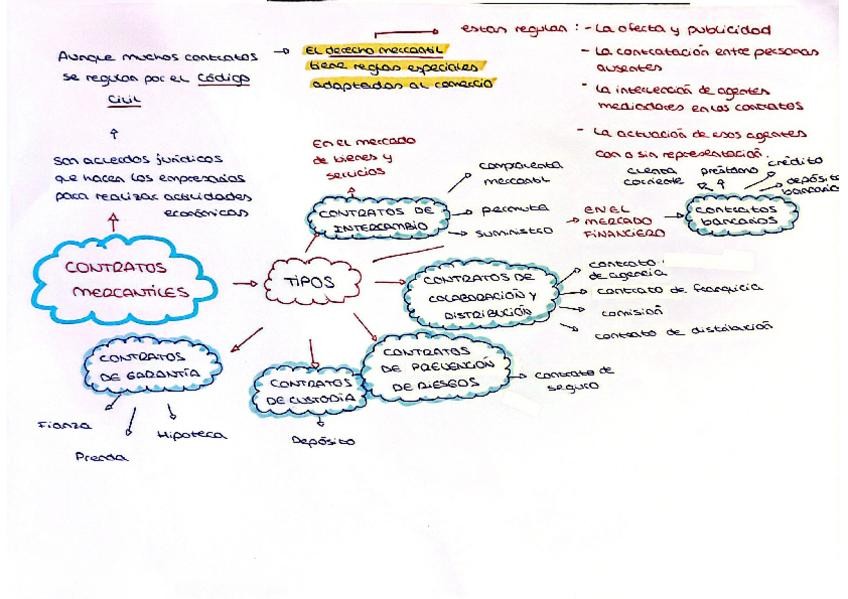 Aunque muchos contratos
se regulan por el Código
Civil
El derecho mercantil
tiene reglas especiales
adaptadas al comercio
estas regulan :
- La oferta y publicidad
- La contratación entre personas
ausentes
- La intervención de agentes
mediadores en los contratos
- La actuación de esos agentes
con o sin representación.
son acuerdos jurídicos
que hacen los empresarios
para realizar actividades
económicas
CONTRATOS
MERCANTILES
TIPOS
En el mercado
de bienes y
servicios
CONTRATOS DE
INTERCAMBIO
compraventa
mercantil
permuta
suministro
EN EL
MERCADO
FINANCIERO
contratos
bancarios
cuenta
corriente
préstamo
crédito
depósito
bancario
CONTRATOS DE
COLABORACIÓN y
DISTRIBUCIÓN
contrato
de agencia
contrato de franquicia
comisión
contrato de distribución
CONTRATOS
DE PREVENCIÓN
DE RIESGOS
contrato de
seguro
CONTRATOS
DE CUSTODIA
Depósito
CONTRATOS
DE GARANTÍA
Fianza
Prenda
Hipoteca